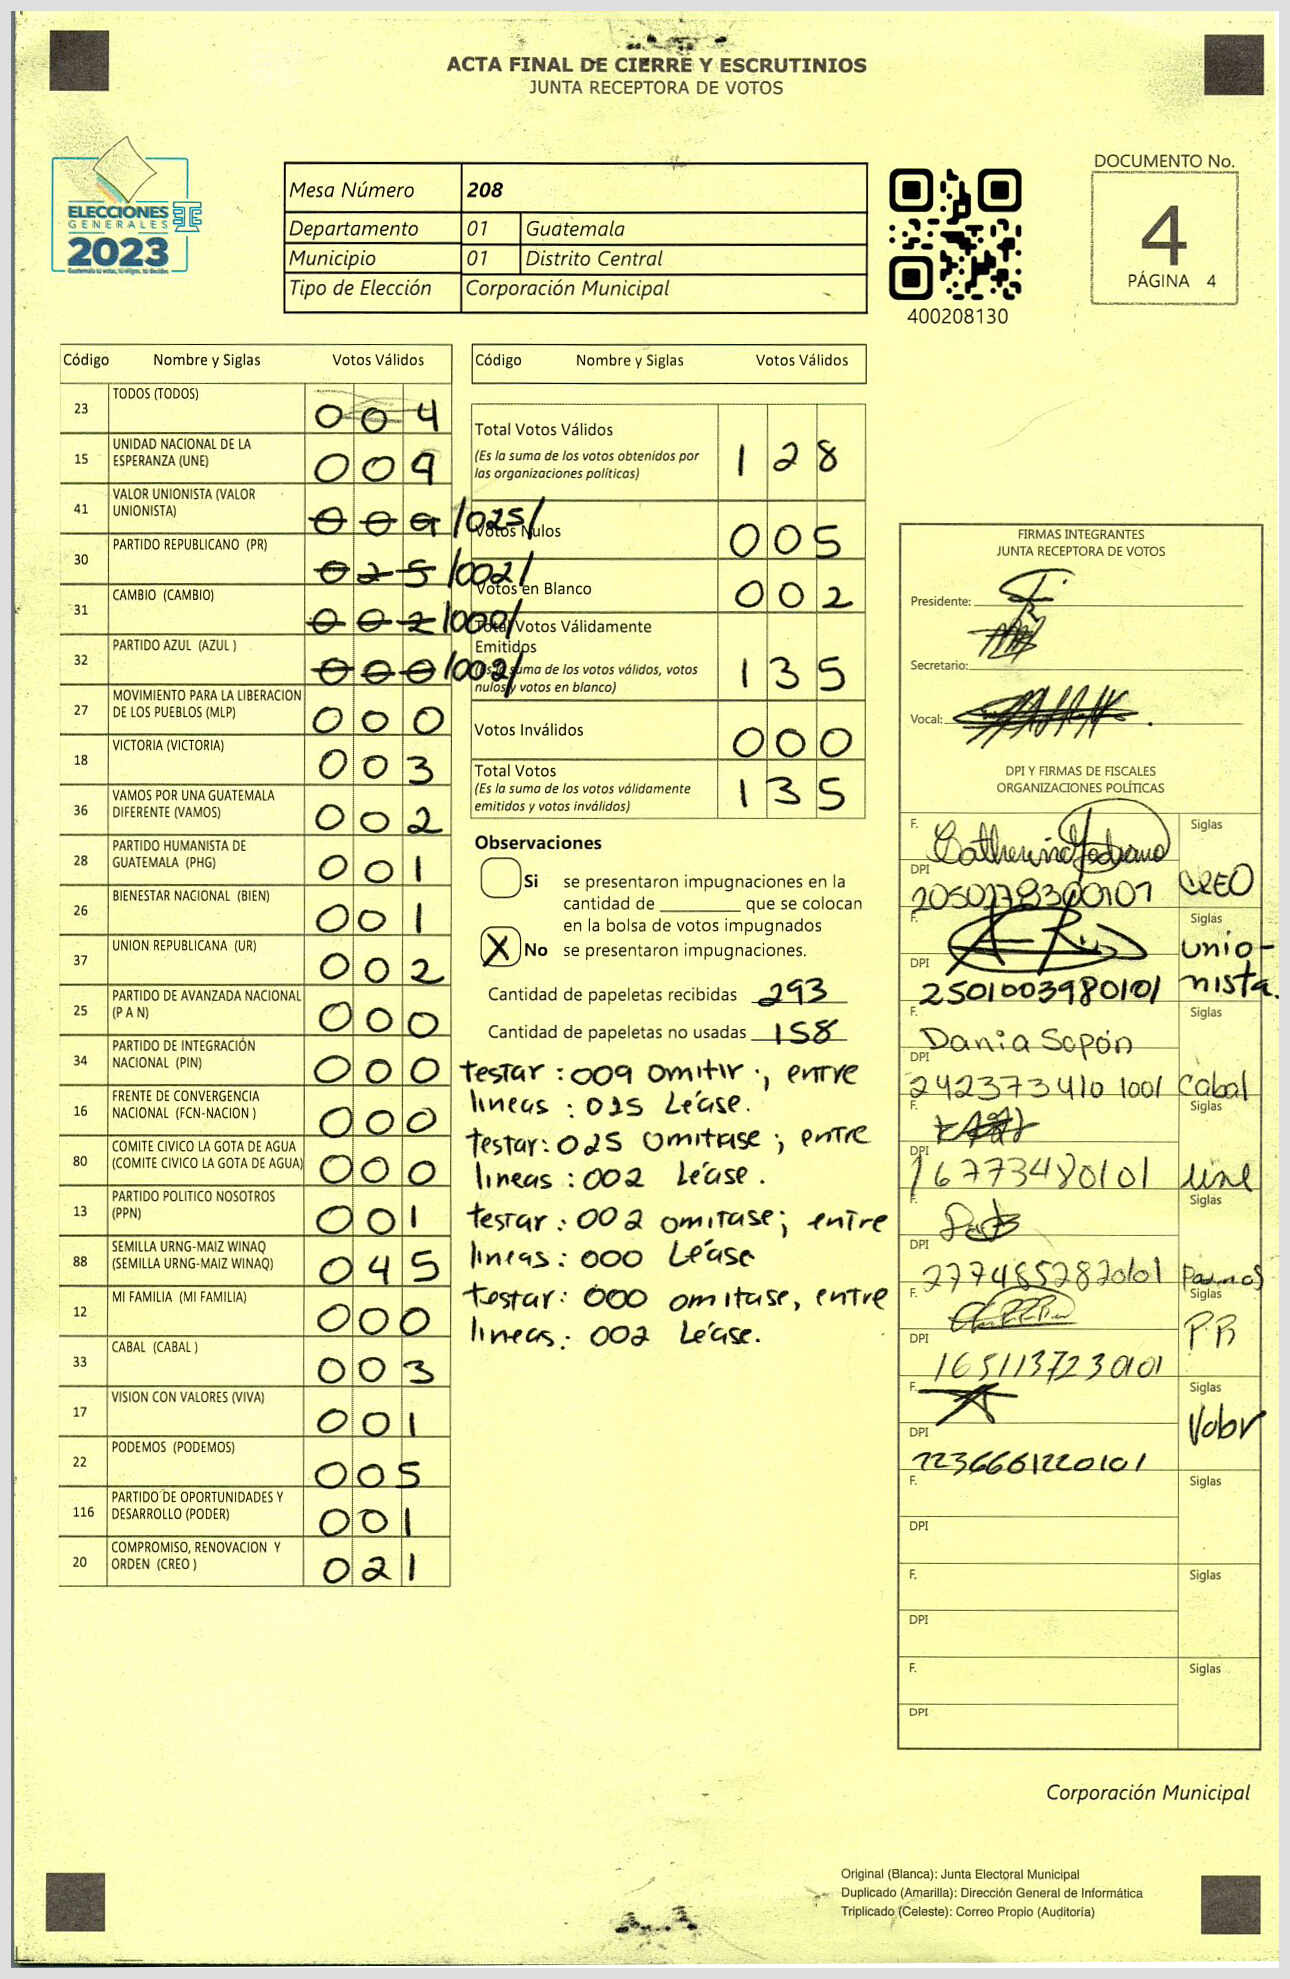 ACTA FINAL DE CIERRE Y ESCRUTINIOS
JUNTA RECEPTORA DE VOTOS
ELECCIONES
GENERALES
2023
Mesa Número 208
Departamento 01 Guatemala
Municipio 01 Distrito Central
Tipo de Elección Corporación Municipal
400208130
DOCUMENTO No.
4
PÁGINA 4
Código Nombre y Siglas Votos Válidos
23 TODOS (TODOS) 004
15 UNIDAD NACIONAL DE LA ESPERANZA (UNE) 009
41 VALOR UNIONISTA (VALOR UNIONISTA) 009 /025/
30 PARTIDO REPUBLICANO (PR) 025 /002/
31 CAMBIO (CAMBIO) 002 /000/
32 PARTIDO AZUL (AZUL ) 000 /002/
27 MOVIMIENTO PARA LA LIBERACION DE LOS PUEBLOS (MLP) 000
18 VICTORIA (VICTORIA) 003
36 VAMOS POR UNA GUATEMALA DIFERENTE (VAMOS) 002
28 PARTIDO HUMANISTA DE GUATEMALA (PHG) 001
26 BIENESTAR NACIONAL (BIEN) 001
37 UNION REPUBLICANA (UR) 002
25 PARTIDO DE AVANZADA NACIONAL (P A N) 000
34 PARTIDO DE INTEGRACIÓN NACIONAL (PIN) 000
16 FRENTE DE CONVERGENCIA NACIONAL (FCN-NACION ) 000
80 COMITE CIVICO LA GOTA DE AGUA (COMITE CIVICO LA GOTA DE AGUA) 000
13 PARTIDO POLITICO NOSOTROS (PPN) 001
88 SEMILLA URNG-MAIZ WINAQ (SEMILLA URNG-MAIZ WINAQ) 045
12 MI FAMILIA (MI FAMILIA) 000
33 CABAL (CABAL ) 003
17 VISION CON VALORES (VIVA) 001
22 PODEMOS (PODEMOS) 005
116 PARTIDO DE OPORTUNIDADES Y DESARROLLO (PODER) 001
20 COMPROMISO, RENOVACION Y ORDEN (CREO ) 021
Código Nombre y Siglas Votos Válidos
Total Votos Válidos 128
(Es la suma de los votos obtenidos por
las organizaciones políticas)
Votos Nulos 005
Votos en Blanco 002
Total Votos Válidamente
Emitidos 135
(Es la suma de los votos válidos, votos
nulos y votos en blanco)
Votos Inválidos 000
Total Votos 135
(Es la suma de los votos válidamente
emitidos y votos inválidos)
Observaciones
Si se presentaron impugnaciones en la
cantidad de ________ que se colocan
en la bolsa de votos impugnados
X No se presentaron impugnaciones.
Cantidad de papeletas recibidas 293
Cantidad de papeletas no usadas 158
testar : 009 omitir ; entre
lineas : 025 Léase.
testar: 025 omitase ; entre
lineas : 002 Léase.
testar : 002 omitase; entre
lineas : 000 Léase
testar: 000 omitase, entre
lineas: 002 Léase.
FIRMAS INTEGRANTES
JUNTA RECEPTORA DE VOTOS
Presidente:
Secretario:
Vocal:
DPI Y FIRMAS DE FISCALES
ORGANIZACIONES POLÍTICAS
F. Siglas
DPI 2050278300101 CREO
F. Siglas
DPI 2501003980101 Unionista.
F. Dania Sopón Siglas
DPI 242373410 1001 Cabal
F. Siglas
DPI 167773480101 une
F. Siglas
DPI 2774852820101
F. Siglas
DPI 1651137230101 PR
F. Siglas
DPI 2236661220101 Valor
F. Siglas
DPI
F. Siglas
DPI
F. Siglas
DPI
Corporación Municipal
Original (Blanca): Junta Electoral Municipal
Duplicado (Amarilla): Dirección General de Informática
Triplicado (Celeste): Correo Propio (Auditoría)